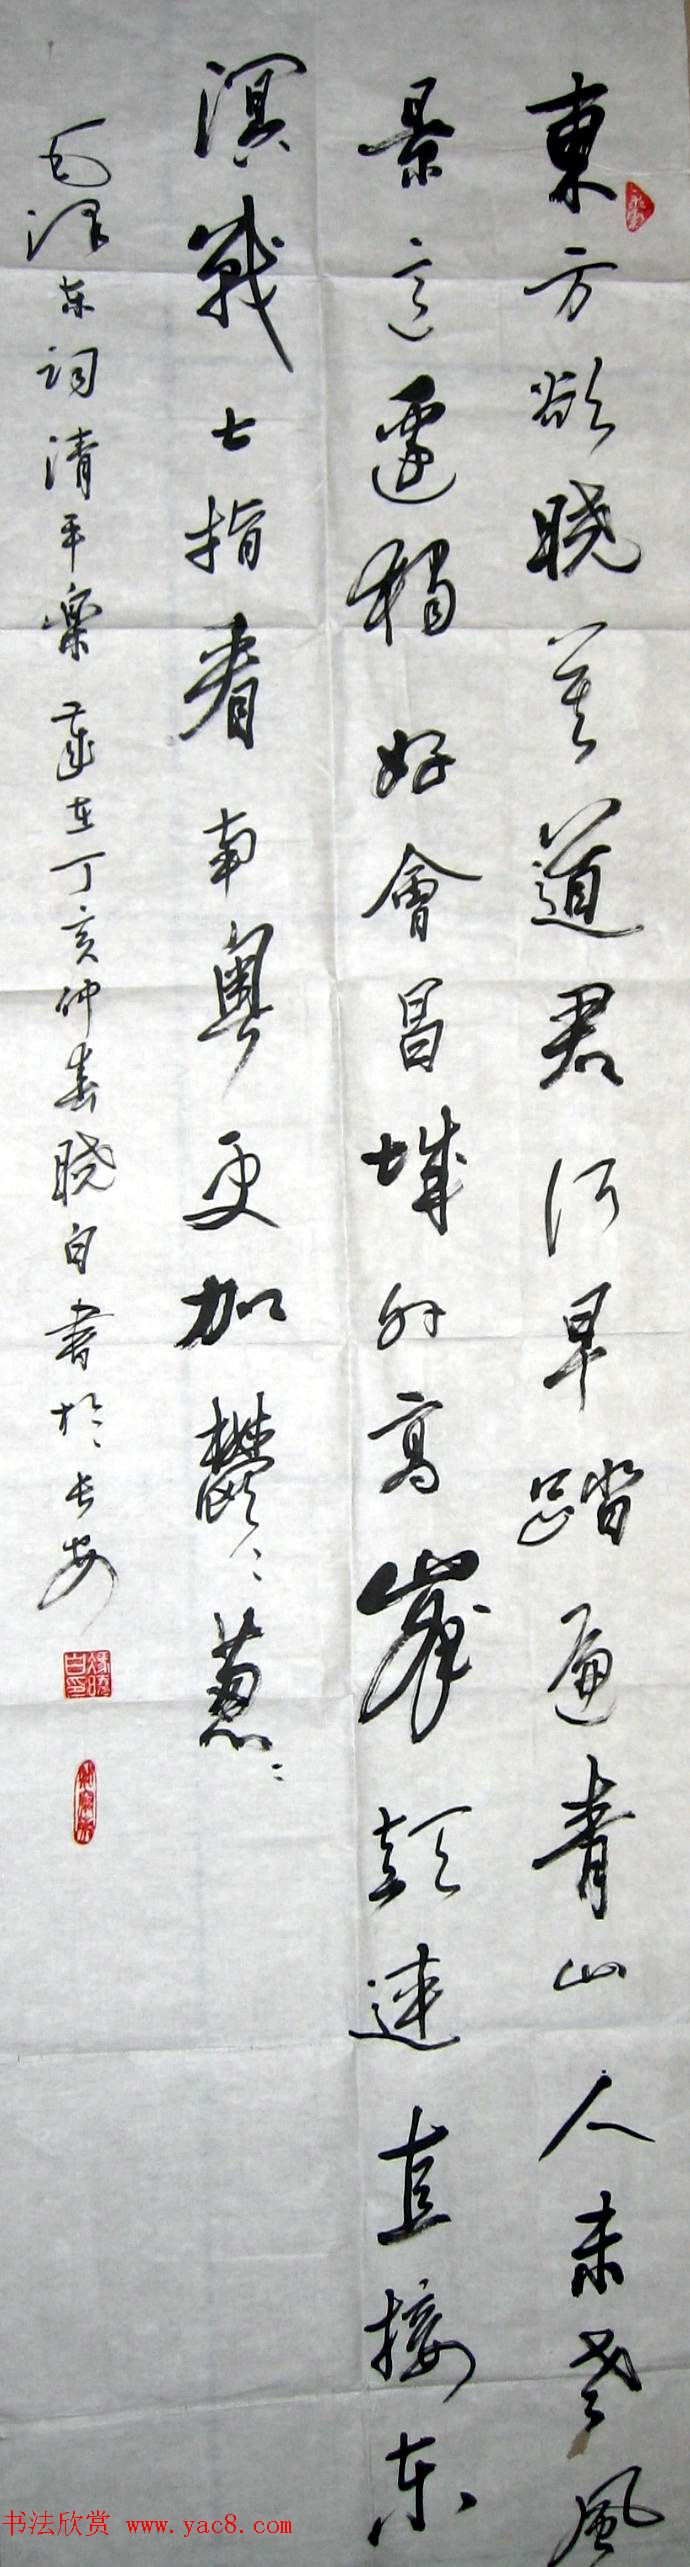 東方欲晓莫道君行早踏遍青山人未老風
景這邊獨好會昌城外高峯颠連直接东
溟戰士指看南粤更加鬱〻蔥〻
毛泽东词清平樂 歲在丁亥仲春晓白書於长安
书法欣赏 www.yac8.com